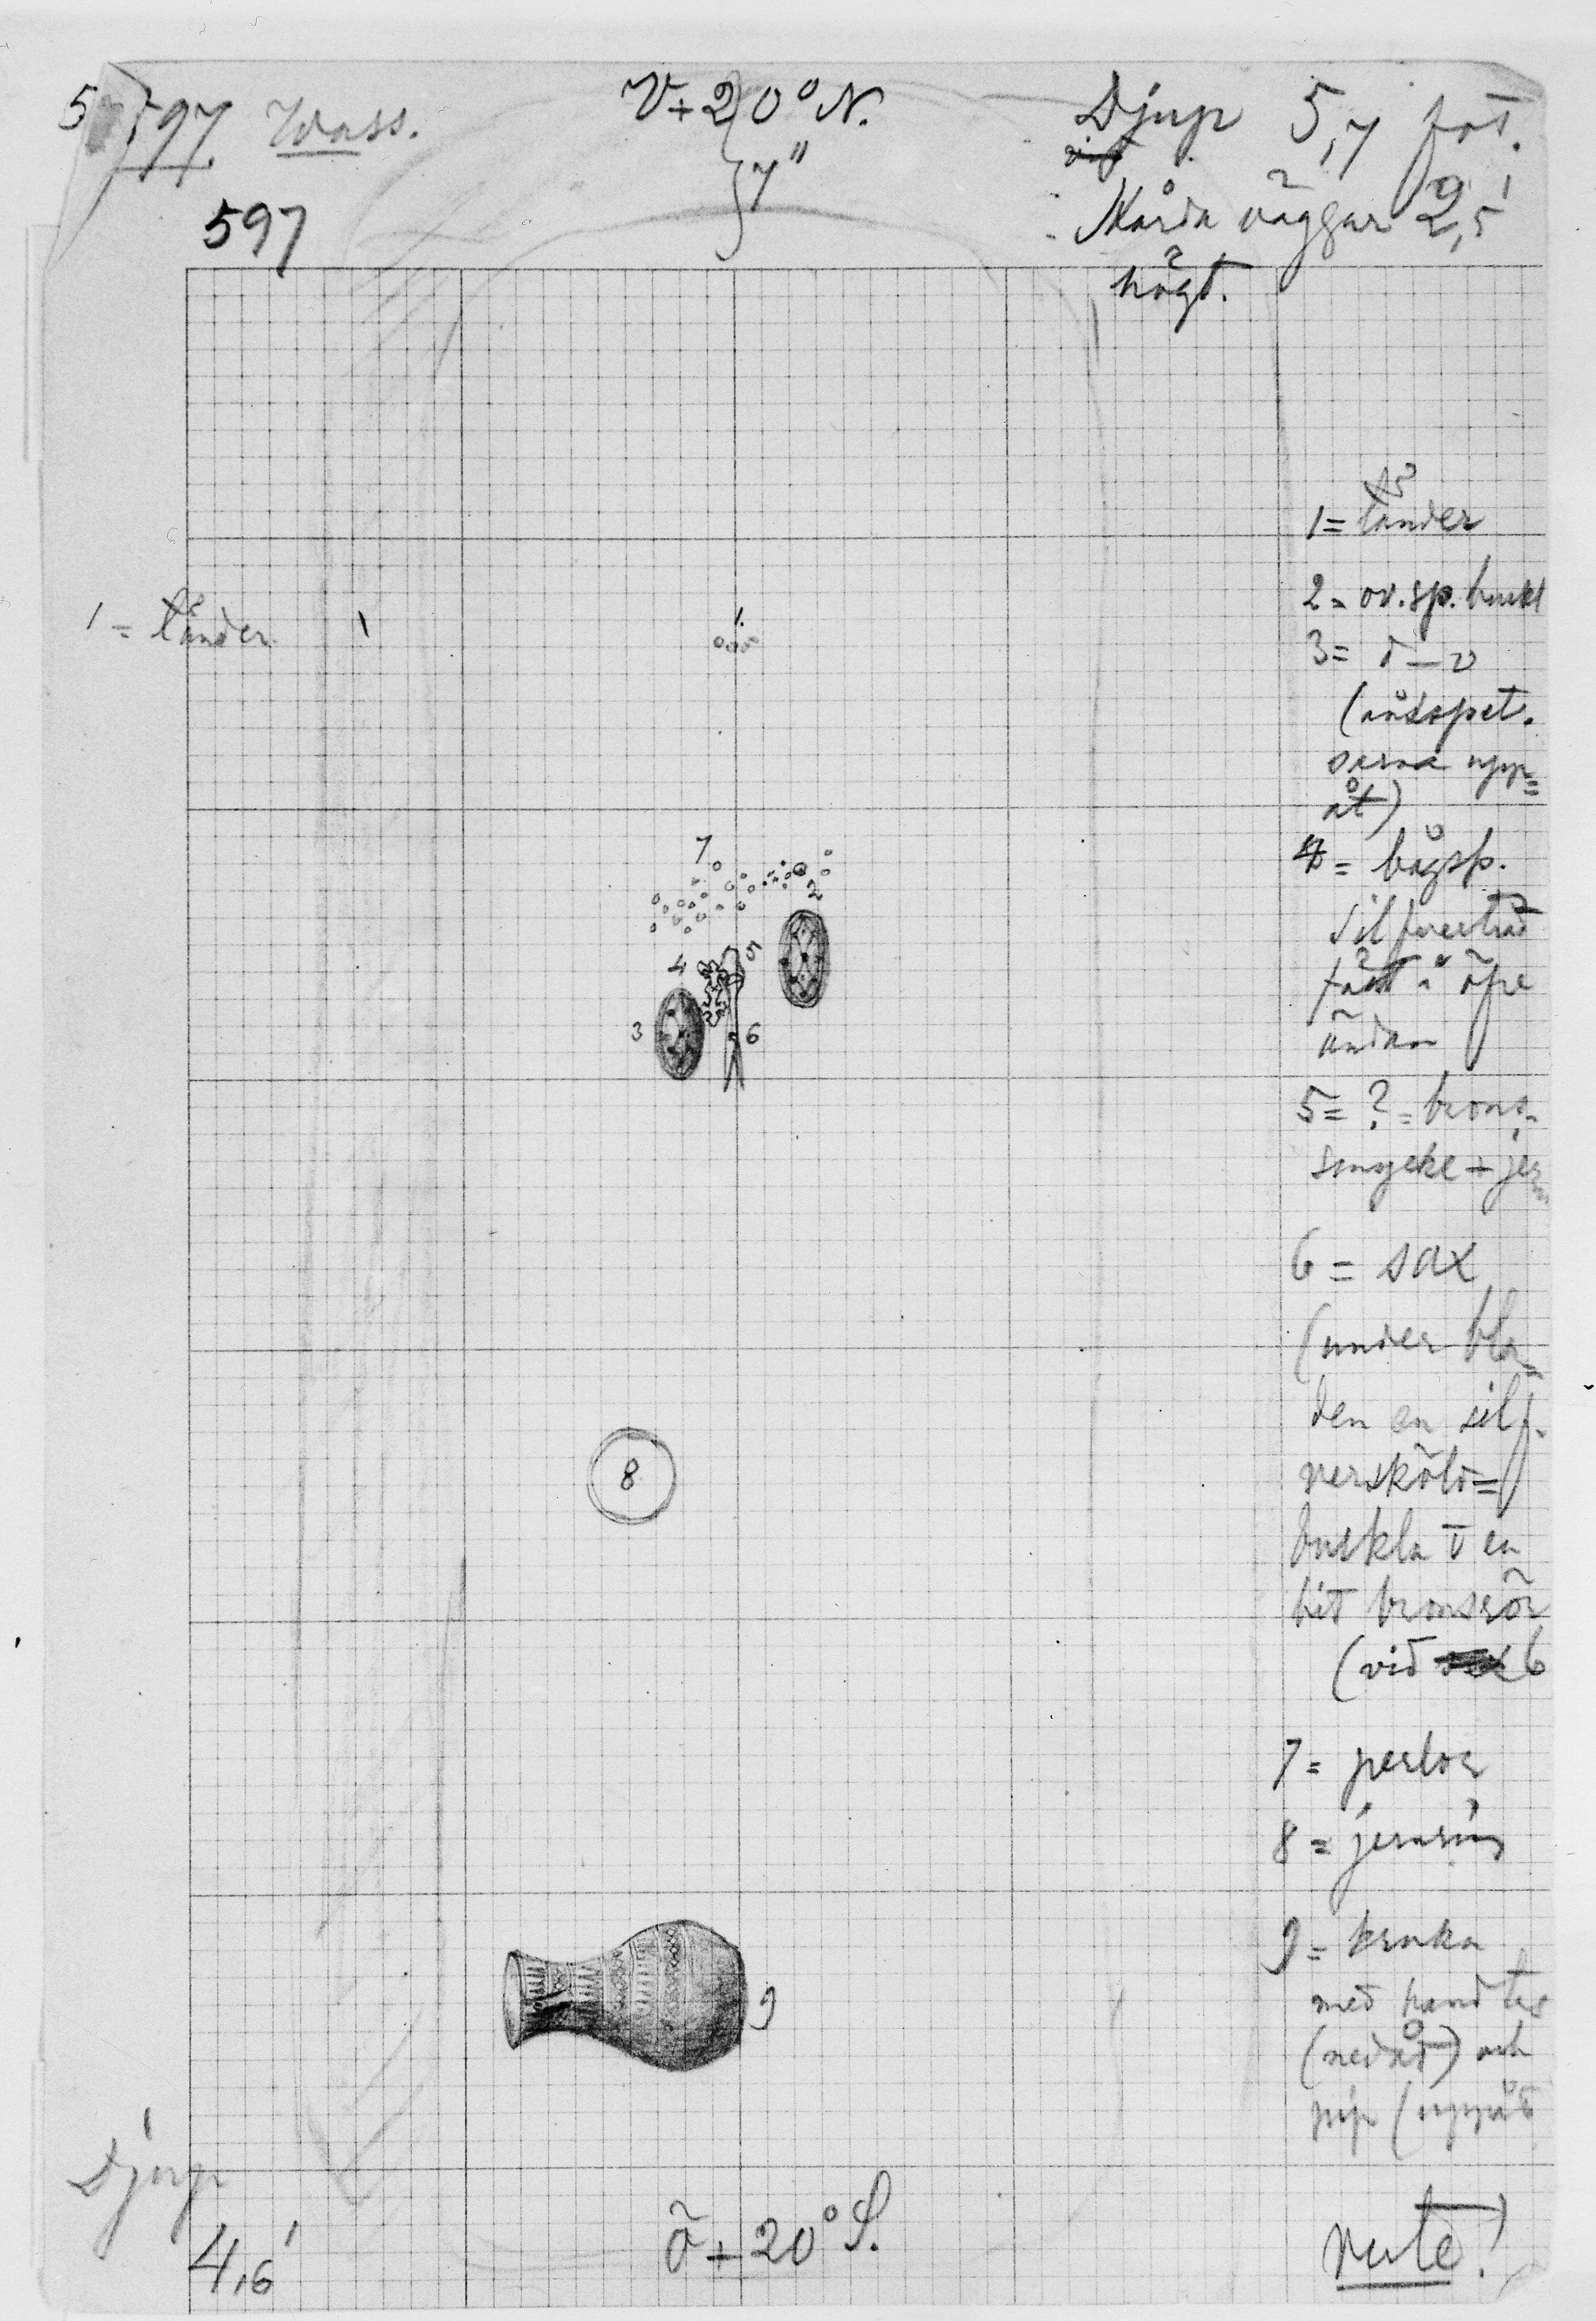 597. Wass.
V+20° N.
7"
Djup 5,7 fot.
Hårda väggar 2,5'
högt.
597
1 = tänder
1
1.
1 = tänder
2 = ov. sp. buckl
3 = d—o
(
upp=
åt)
4 = bågsp.
silfvertråd
fäst i öfre
ändan
5 = ? = brons-
smycke + jern
6 = sax
(under bla-
den en silf-
versköld=
buckla o en
bit bronsrör
(vid 6
7 = perlor
8 = jernring
9 = kruka
med handtag
(nedåt) och
pip (uppåt
7
2
4
5
3
6
8
9
Djup
4,6'
ö+20° S.